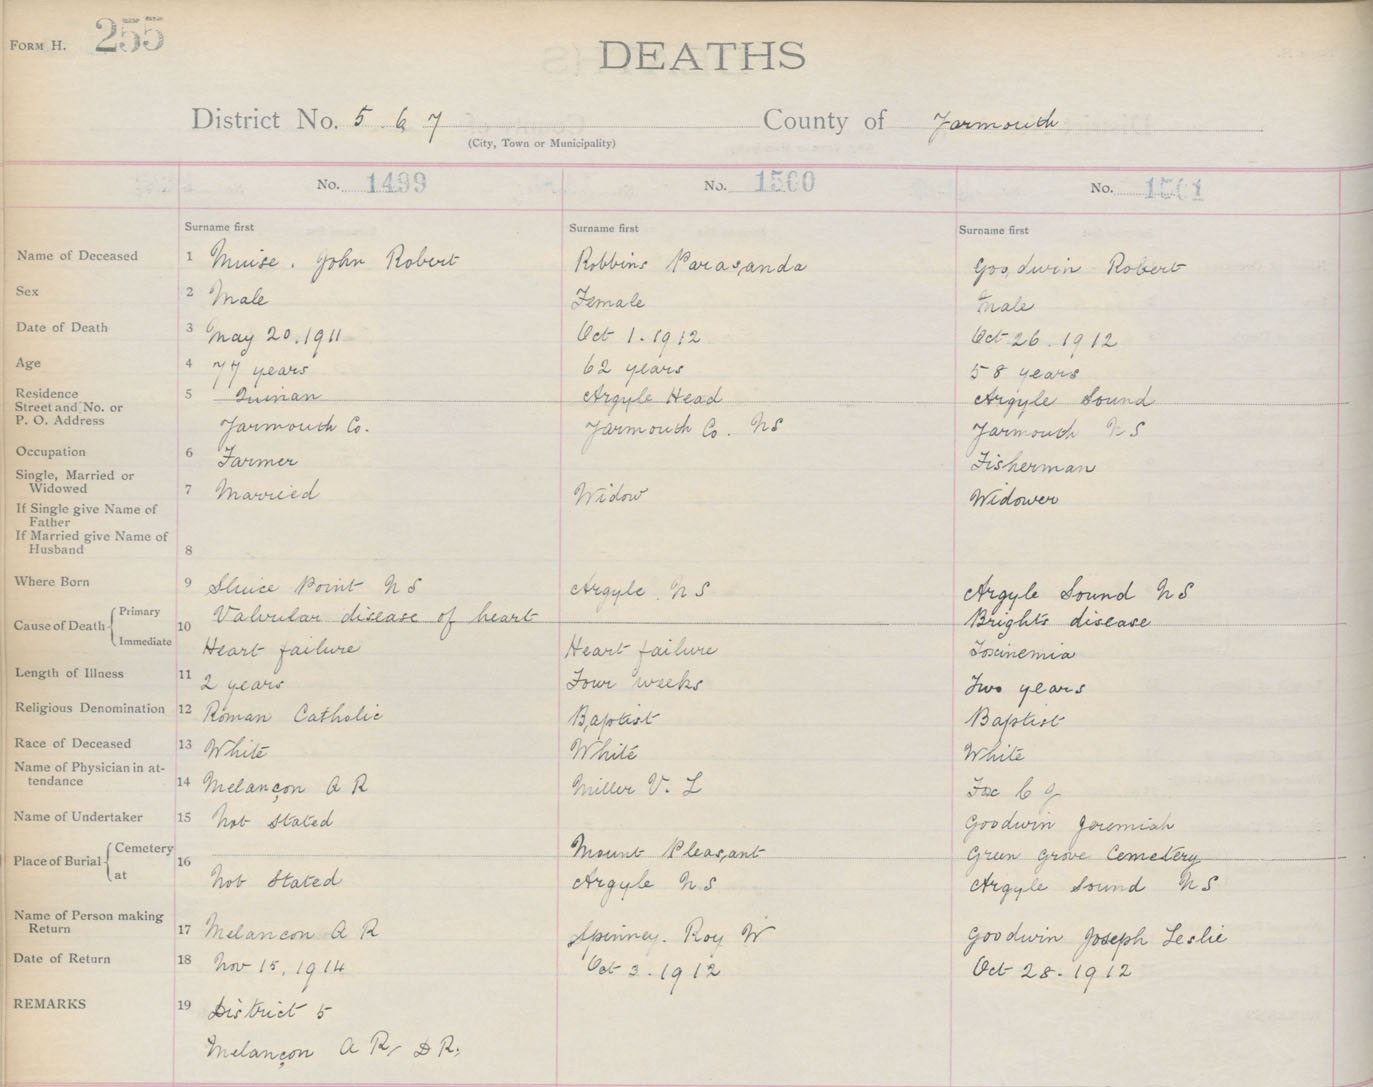 FORM H. 255
DEATHS
District No. 5. 6 7 County of Yarmouth
(City, Town or Municipality)
No. 1499 No. 1500 No. 1501
Surname first Surname first Surname first
Name of Deceased 1 Muise. John Robert Robbins Parasanda Goodwin Robert
Sex 2 Male Female Male
Date of Death 3 May 20, 1911 Oct 1. 1912 Oct 26. 1912
Age 4 77 years 62 years 58 years
Residence 5 Quinan Argyle Head Argyle Sound
Street and No. or
P. O. Address Yarmouth Co. Yarmouth Co. NS Yarmouth NS
Occupation 6 Farmer Fisherman
Single, Married or
Widowed 7 Married Widow Widower
If Single give Name of
Father
If Married give Name of
Husband 8
Where Born 9 Sluice Point NS Argyle. NS Argyle Sound NS
Cause of Death Primary 10 Valvular disease of heart Brights disease
Immediate Heart failure Heart failure Toxinemia
Length of Illness 11 2 years Four weeks Two years
Religious Denomination 12 Roman Catholic Baptist Baptist
Race of Deceased 13 White White White
Name of Physician in at-
tendance 14 Melançon A R Miller V. L Fox C J
Name of Undertaker 15 Not Stated Goodwin Jeremiah
Place of Burial Cemetery 16 Mount Pleasant Green Grove Cemetery
at Not Stated Argyle NS Argyle Sound NS
Name of Person making
Return 17 Melancon A R Spinney. Roy W Goodwin Joseph Leslie
Date of Return 18 Nov 15, 1914 Oct 3. 1912 Oct 28. 1912
REMARKS 19 District 5
Melançon A R, D R.